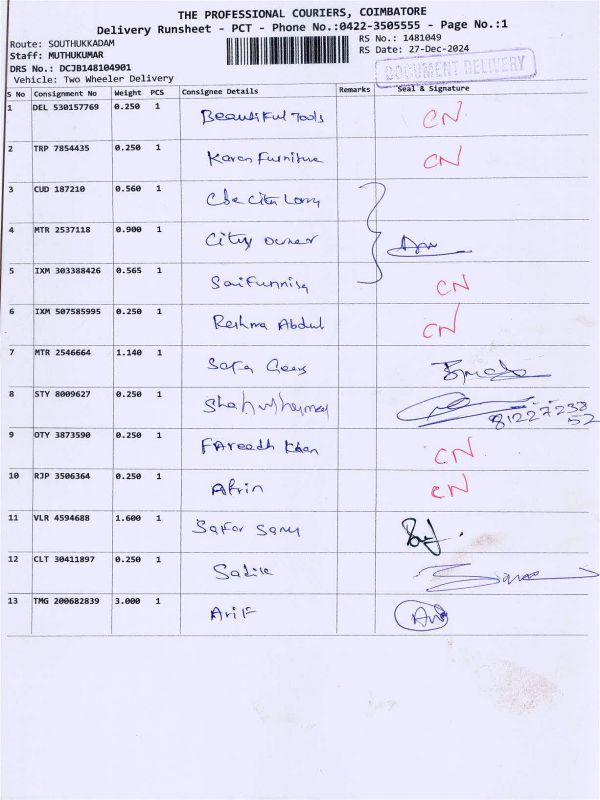 THE PROFESSIONAL COURIERS, COIMBATORE
Delivery Runsheet - PCT - Phone No.:0422-3505555 - Page No.:1
Route: SOUTHUKKADAM
RS No.: 1481049
Staff: MUTHUKUMAR
RS Date: 27-Dec-2024
DRS No.: DCJB148104901
DOCUMENT DELIVERY
Vehicle: Two Wheeler Delivery
S No Consignment No Weight PCS Consignee Details Remarks Seal & Signature
1 DEL 530157769 0.250 1 Beautiful Tools CN
2 TRP 7854435 0.250 1 Karan Furniture CN
3 CUD 187210 0.560 1 Cbe City Lorry
4 MTR 2537118 0.900 1 City owner
5 IXM 303388426 0.565 1 Saifunnisa CN
6 IXM 507585995 0.250 1 Reshma Abdul CN
7 MTR 2546664 1.140 1 Safa
8 STY 8009627 0.250 1 81227238
52
9 OTY 3873590 0.250 1 FAreedh Khan CN
10 RJP 3506364 0.250 1 Afrin CN
11 VLR 4594688 1.600 1 Safar
12 CLT 30411897 0.250 1 Sadik
13 TMG 200682839 3.000 1 Arif